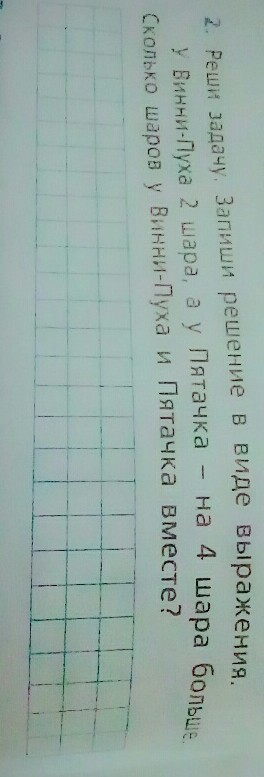 2. Реши задачу. Запиши решение в виде выражения.
У Винни-Пуха 2 шара, а у Пятачка – на 4 шара больше.
Сколько шаров у Винни-Пуха и Пятачка вместе?